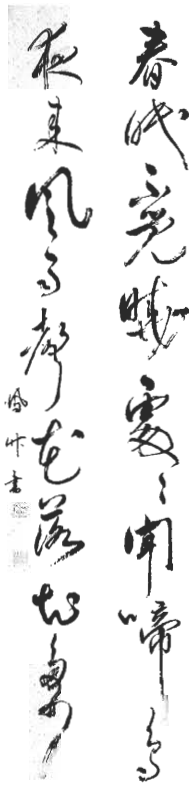 春眠不覺曉處々聞啼鳥
夜来風雨聲花落知多少
書